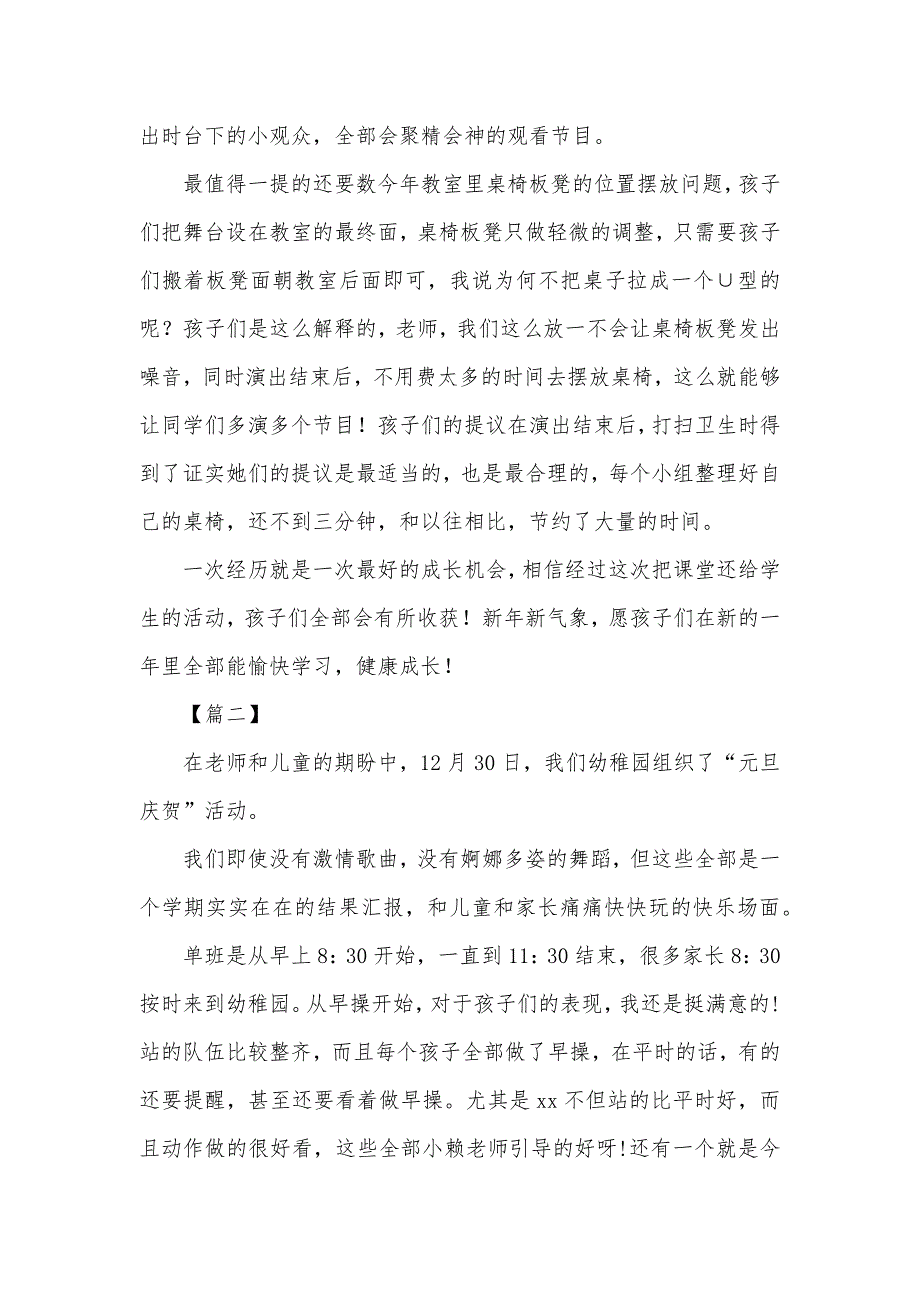 出时台下的小观众，全部会聚精会神的观看节目。
最值得一提的还要数今年教室里桌椅板凳的位置摆放问题，孩子
们把舞台设在教室的最终面，桌椅板凳只做轻微的调整，只需要孩子
们搬着板凳面朝教室后面即可，我说为何不把桌子拉成一个∪型的
呢？孩子们是这么解释的，老师，我们这么放一不会让桌椅板凳发出
噪音，同时演出结束后，不用费太多的时间去摆放桌椅，这么就能够
让同学们多演多个节目！孩子们的提议在演出结束后，打扫卫生时得
到了证实她们的提议是最适当的，也是最合理的，每个小组整理好自
己的桌椅，还不到三分钟，和以往相比，节约了大量的时间。
一次经历就是一次最好的成长机会，相信经过这次把课堂还给学
生的活动，孩子们全部会有所收获！新年新气象，愿孩子们在新的一
年里全部能愉快学习，健康成长！
【篇二】
在老师和儿童的期盼中，12月30日，我们幼稚园组织了“元旦
庆贺”活动。
我们即使没有激情歌曲，没有婀娜多姿的舞蹈，但这些全部是一
个学期实实在在的结果汇报，和儿童和家长痛痛快快玩的快乐场面。
单班是从早上8：30开始，一直到11：30结束，很多家长8：30
按时来到幼稚园。从早操开始，对于孩子们的表现，我还是挺满意的!
站的队伍比较整齐，而且每个孩子全部做了早操，在平时的话，有的
还要提醒，甚至还要看着做早操。尤其是xx不但站的比平时好，而
且动作做的很好看，这些全部小赖老师引导的好呀!还有一个就是今